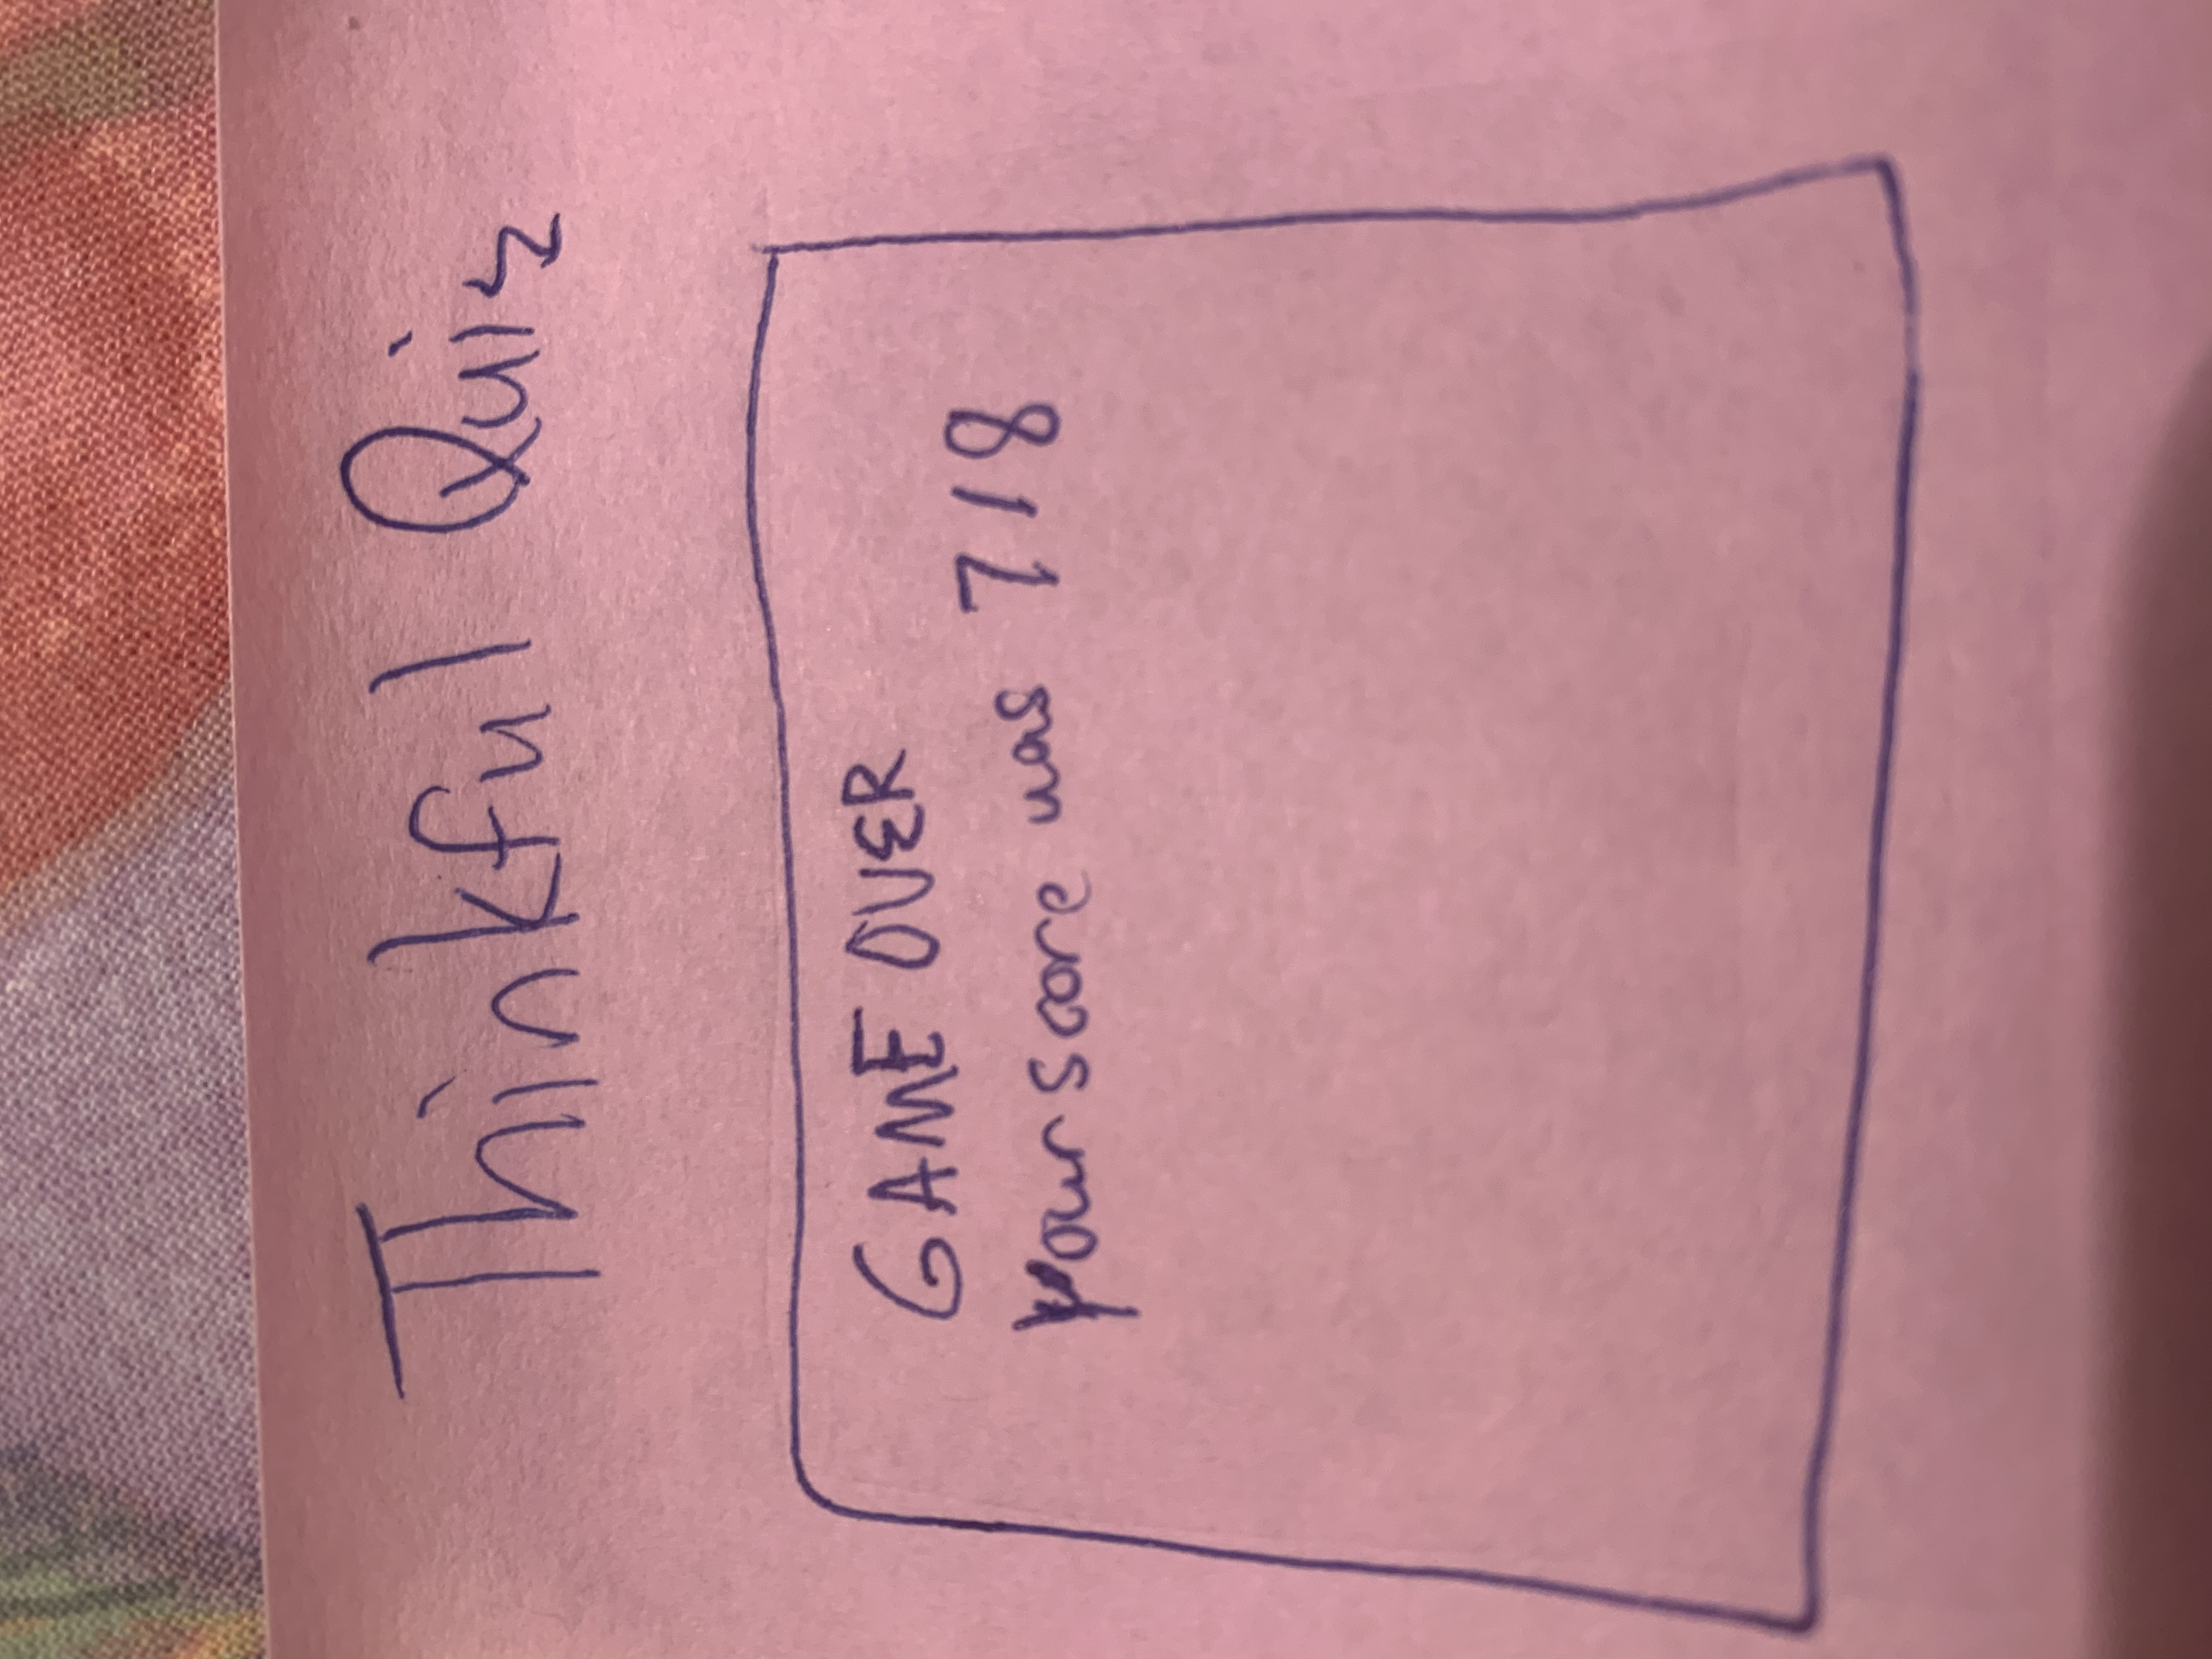 Thinkful Quiz
GAME OVER
your score was 7/8